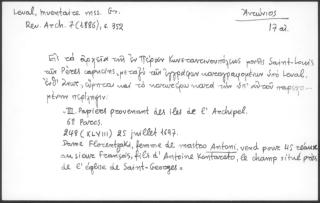 Laval, Inventaire mss. Gr.
Rev. Arch. 7 (1886), σ. 352
Ἀντώνιος
17 αἰ.
Εἰς τὰ ἀρχεῖα τῆς ἐν Πέραν Κωνσταντινουπόλεως μονῆς Saint-Louis
τῶν Pères capucins, μεταξὺ τῶν ἐγγράφων καταγραφομένων ὑπὸ Laval,
καὶ τὸ κατωτέρω κατὰ τὴν ὑπ' αὐτοῦ
περίληψιν:
"III. Papiers provenant des iles de l'Archipel.
6º Paros.
248 (XLVIII) 25 juillet 1697.
Dame Florentzaki, femme de mastro Antoni, vend pour 45 réaux
au sieur François, fils d'Antoine Kontarato, le champ situé près
de l'église de Saint-Georges."